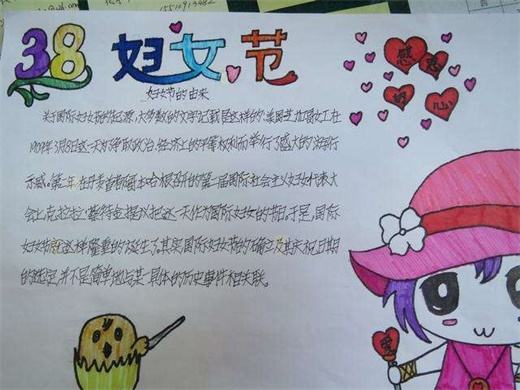 15510913482
38 妇女节
妇女节的由来
感恩
的心
关于国际妇女节的起源,大多数的文字记载是这样的:美国芝加哥女工在
1909年3月8日这一天为争取政治、经济上的平等权利而举行了盛大的游行
示威。第二年在丹麦首都哥本哈根召开的第一届国际社会主义妇女代表大
会上克拉拉·蔡特金提议把这一天作为国际妇女的节日,于是,国际
妇女节就这样隆重的诞生了,其实国际妇女节的确立及其庆祝日期
的选定,并不是简单地与某一具体的历史事件相关联。
爱